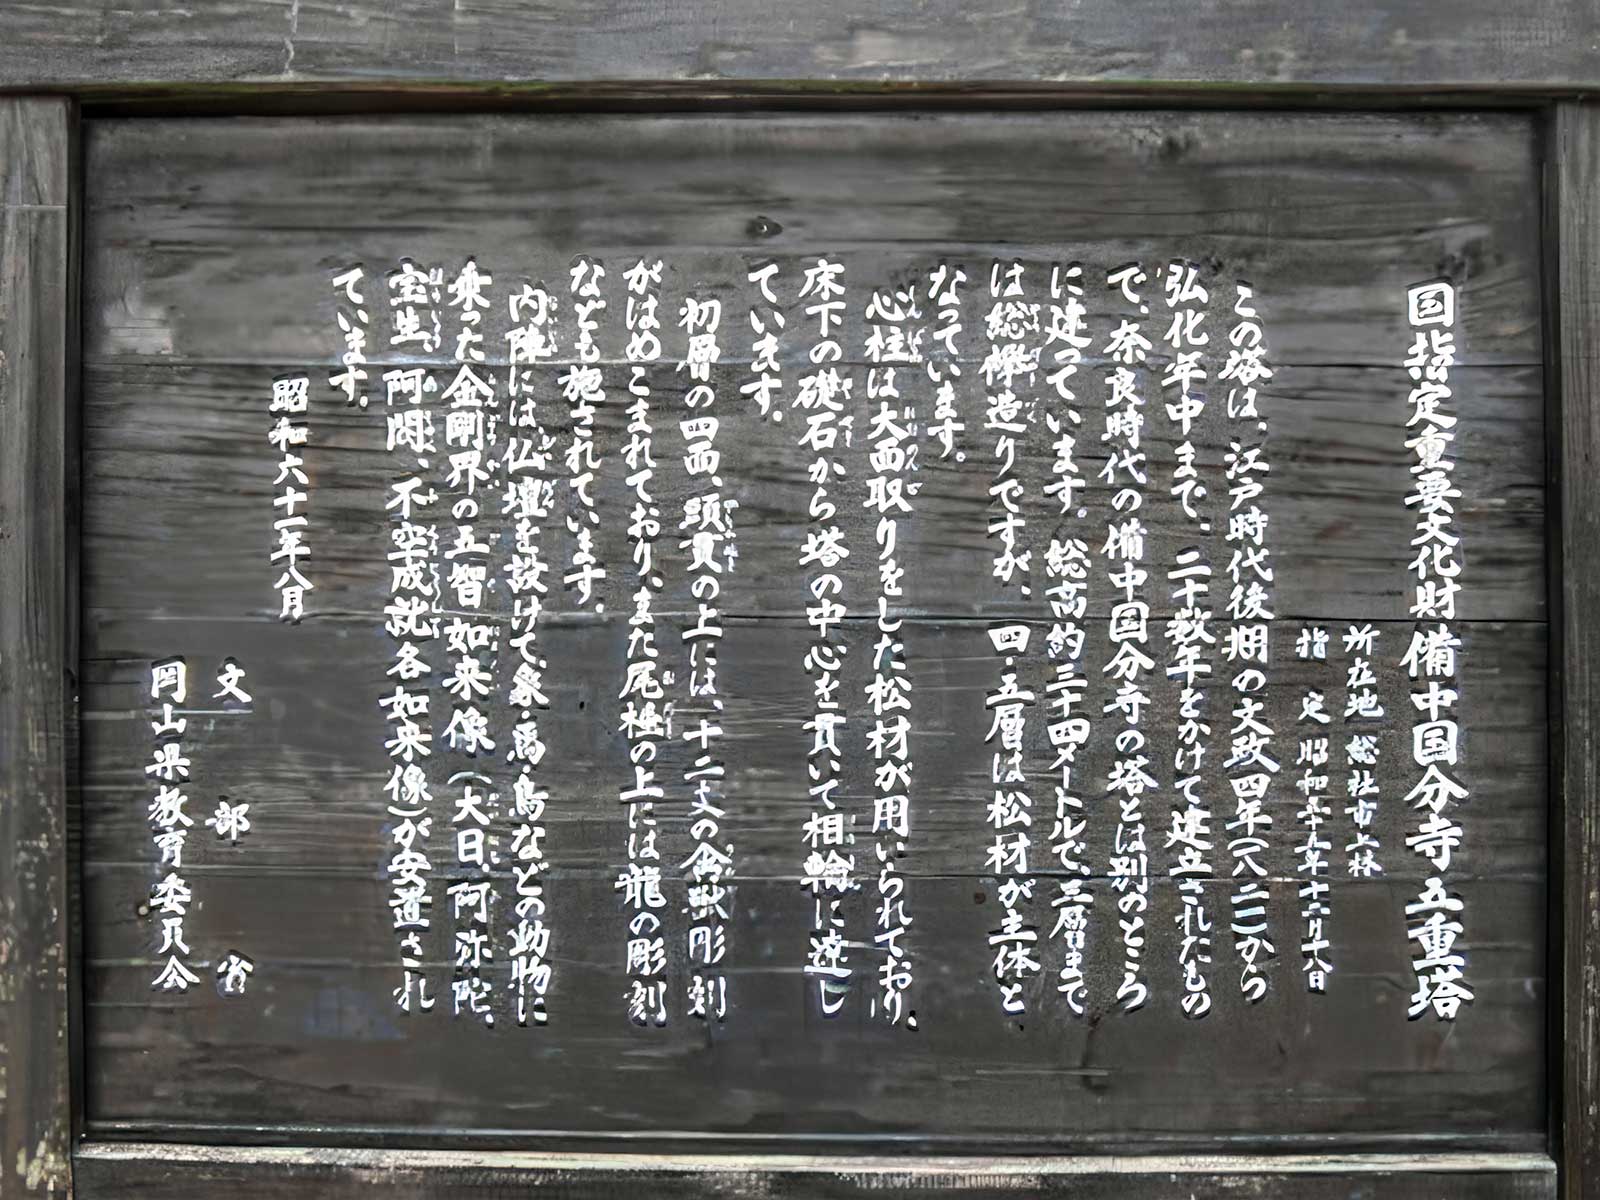 国指定重要文化財備中国分寺五重塔
所在地 総社市上林
指定 昭和
年十二月十八日
この塔は、江戸時代後期の文政四年(一八二一)から
弘化年中まで、二十数年をかけて建立されたもの
で、奈良時代の備中国分寺の塔とは別のところ
に建っています。総高約三十四メートルで、三層まで
は総欅造りですが、四・五層は松材が主体と
なっています。
心柱は大面取りをした松材が用いられており、
床下の礎石から塔の中心を貫いて相輪に達し
ています。
初層の四面、頭貫の上には、十二支の禽獣彫刻
がはめこまれており、また尾極の上には龍の彫刻
なども施されています。
内陣には仏壇を設けて、象・馬・鳥などの動物に
乗った金剛界の五智如来像(大日、阿弥陀、
宝生、阿閦、不空成就各如来像)が安置され
ています。
昭和六十一年八月
文部省
岡山県教育委員会